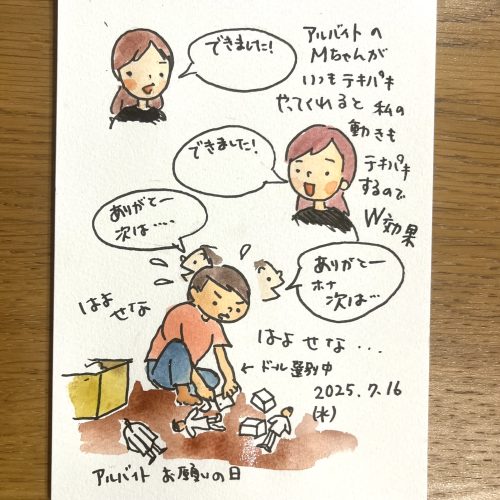 できました!
アルバイトの
Mちゃんが
いつもテキパキ
やってくれると私の
動きも
テキパキ
するので
W効果
できました!
ありがとー
次は……
ありがとー
ホナ
次は…
はよ
せな
はよ
せな...
←ドール選別中
2025.7.16
(水)
アルバイト お願いの日